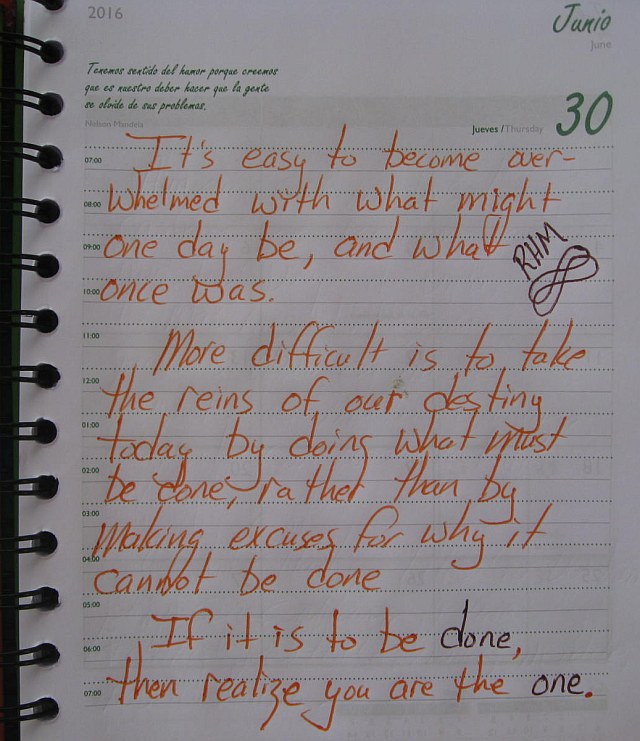 2016
Junio
June
Tenemos sentido del humor porque creemos
que es nuestro deber hacer que la gente
se olvide de sus problemas.
Nelson Mandela
Jueves / Thursday 30
07:00 It's easy to become over-
08:00 whelmed with what might
09:00 one day be, and what
RHM
10:00 once was.
11:00 More difficult is to take
12:00 the reins of our destiny
01:00 today by doing what must
02:00 be done, rather than by
03:00 making excuses for why it
04:00 cannot be done
05:00 If it is to be done,
06:00 then realize you are the one.
07:00